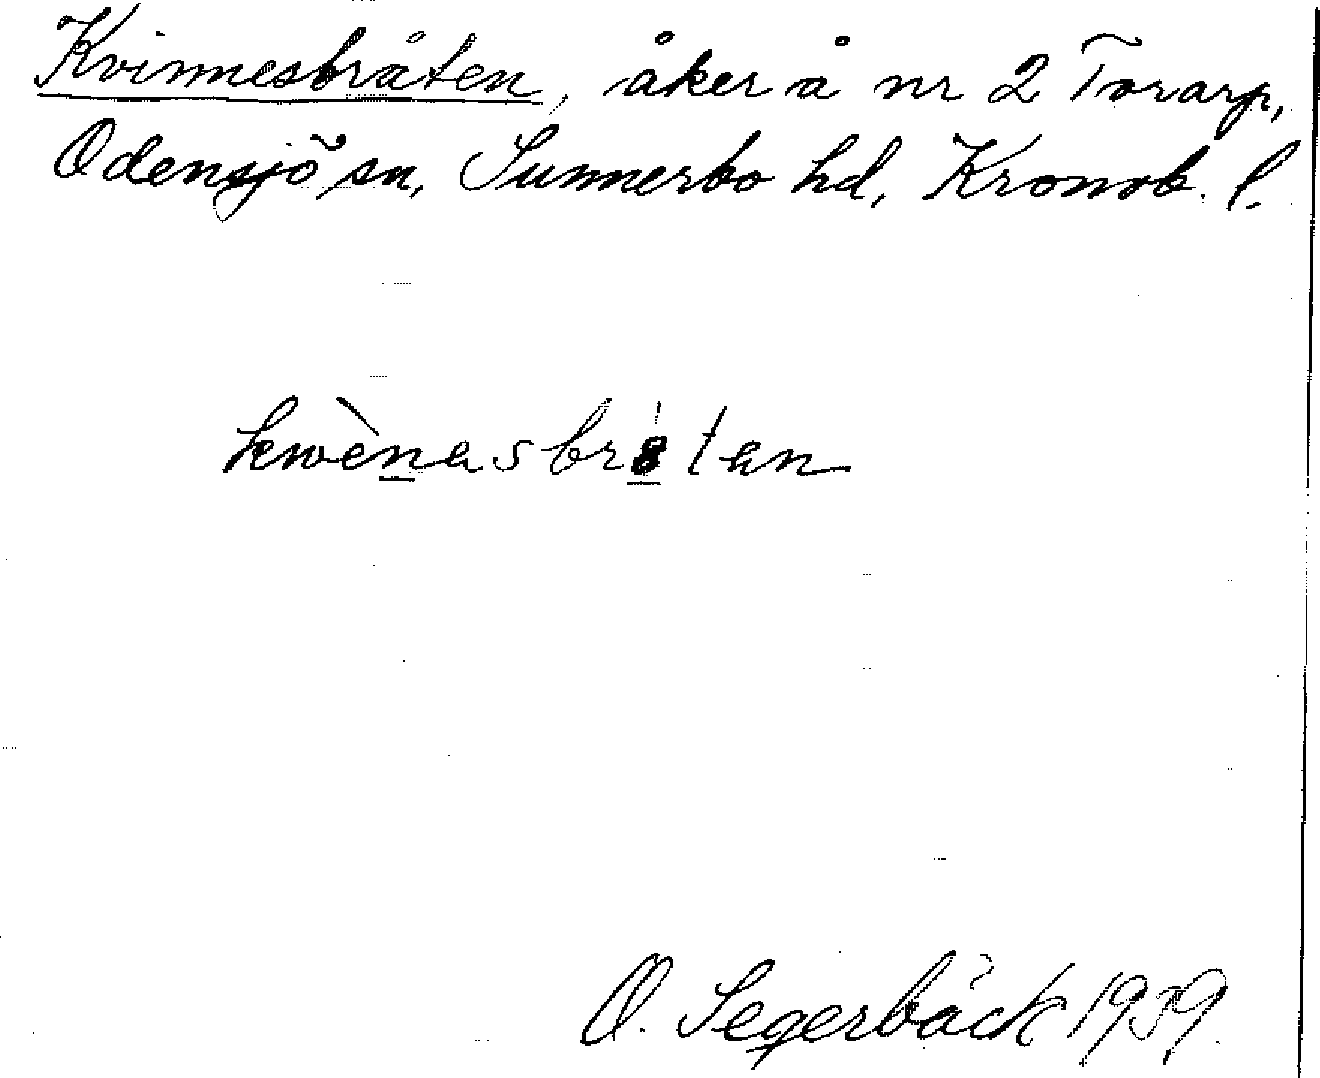 Kvinnesbråten, åker å nr 2 Torarp,
Odensjö sn, Sunnerbo hd, Kronob. l.
kwènasbråtan
O. Segerbäck 1939.